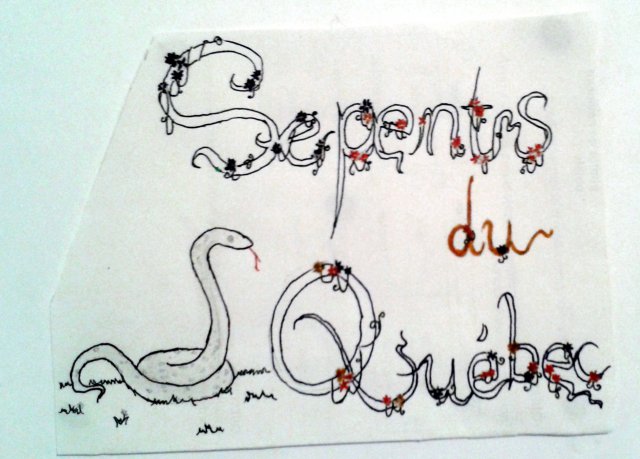 Sepentrs
du
Québec